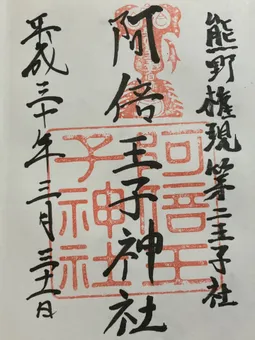 熊野権現第二王子社
阿倍王子神社
平成三十年三月三十一日
阿倍王
子神社